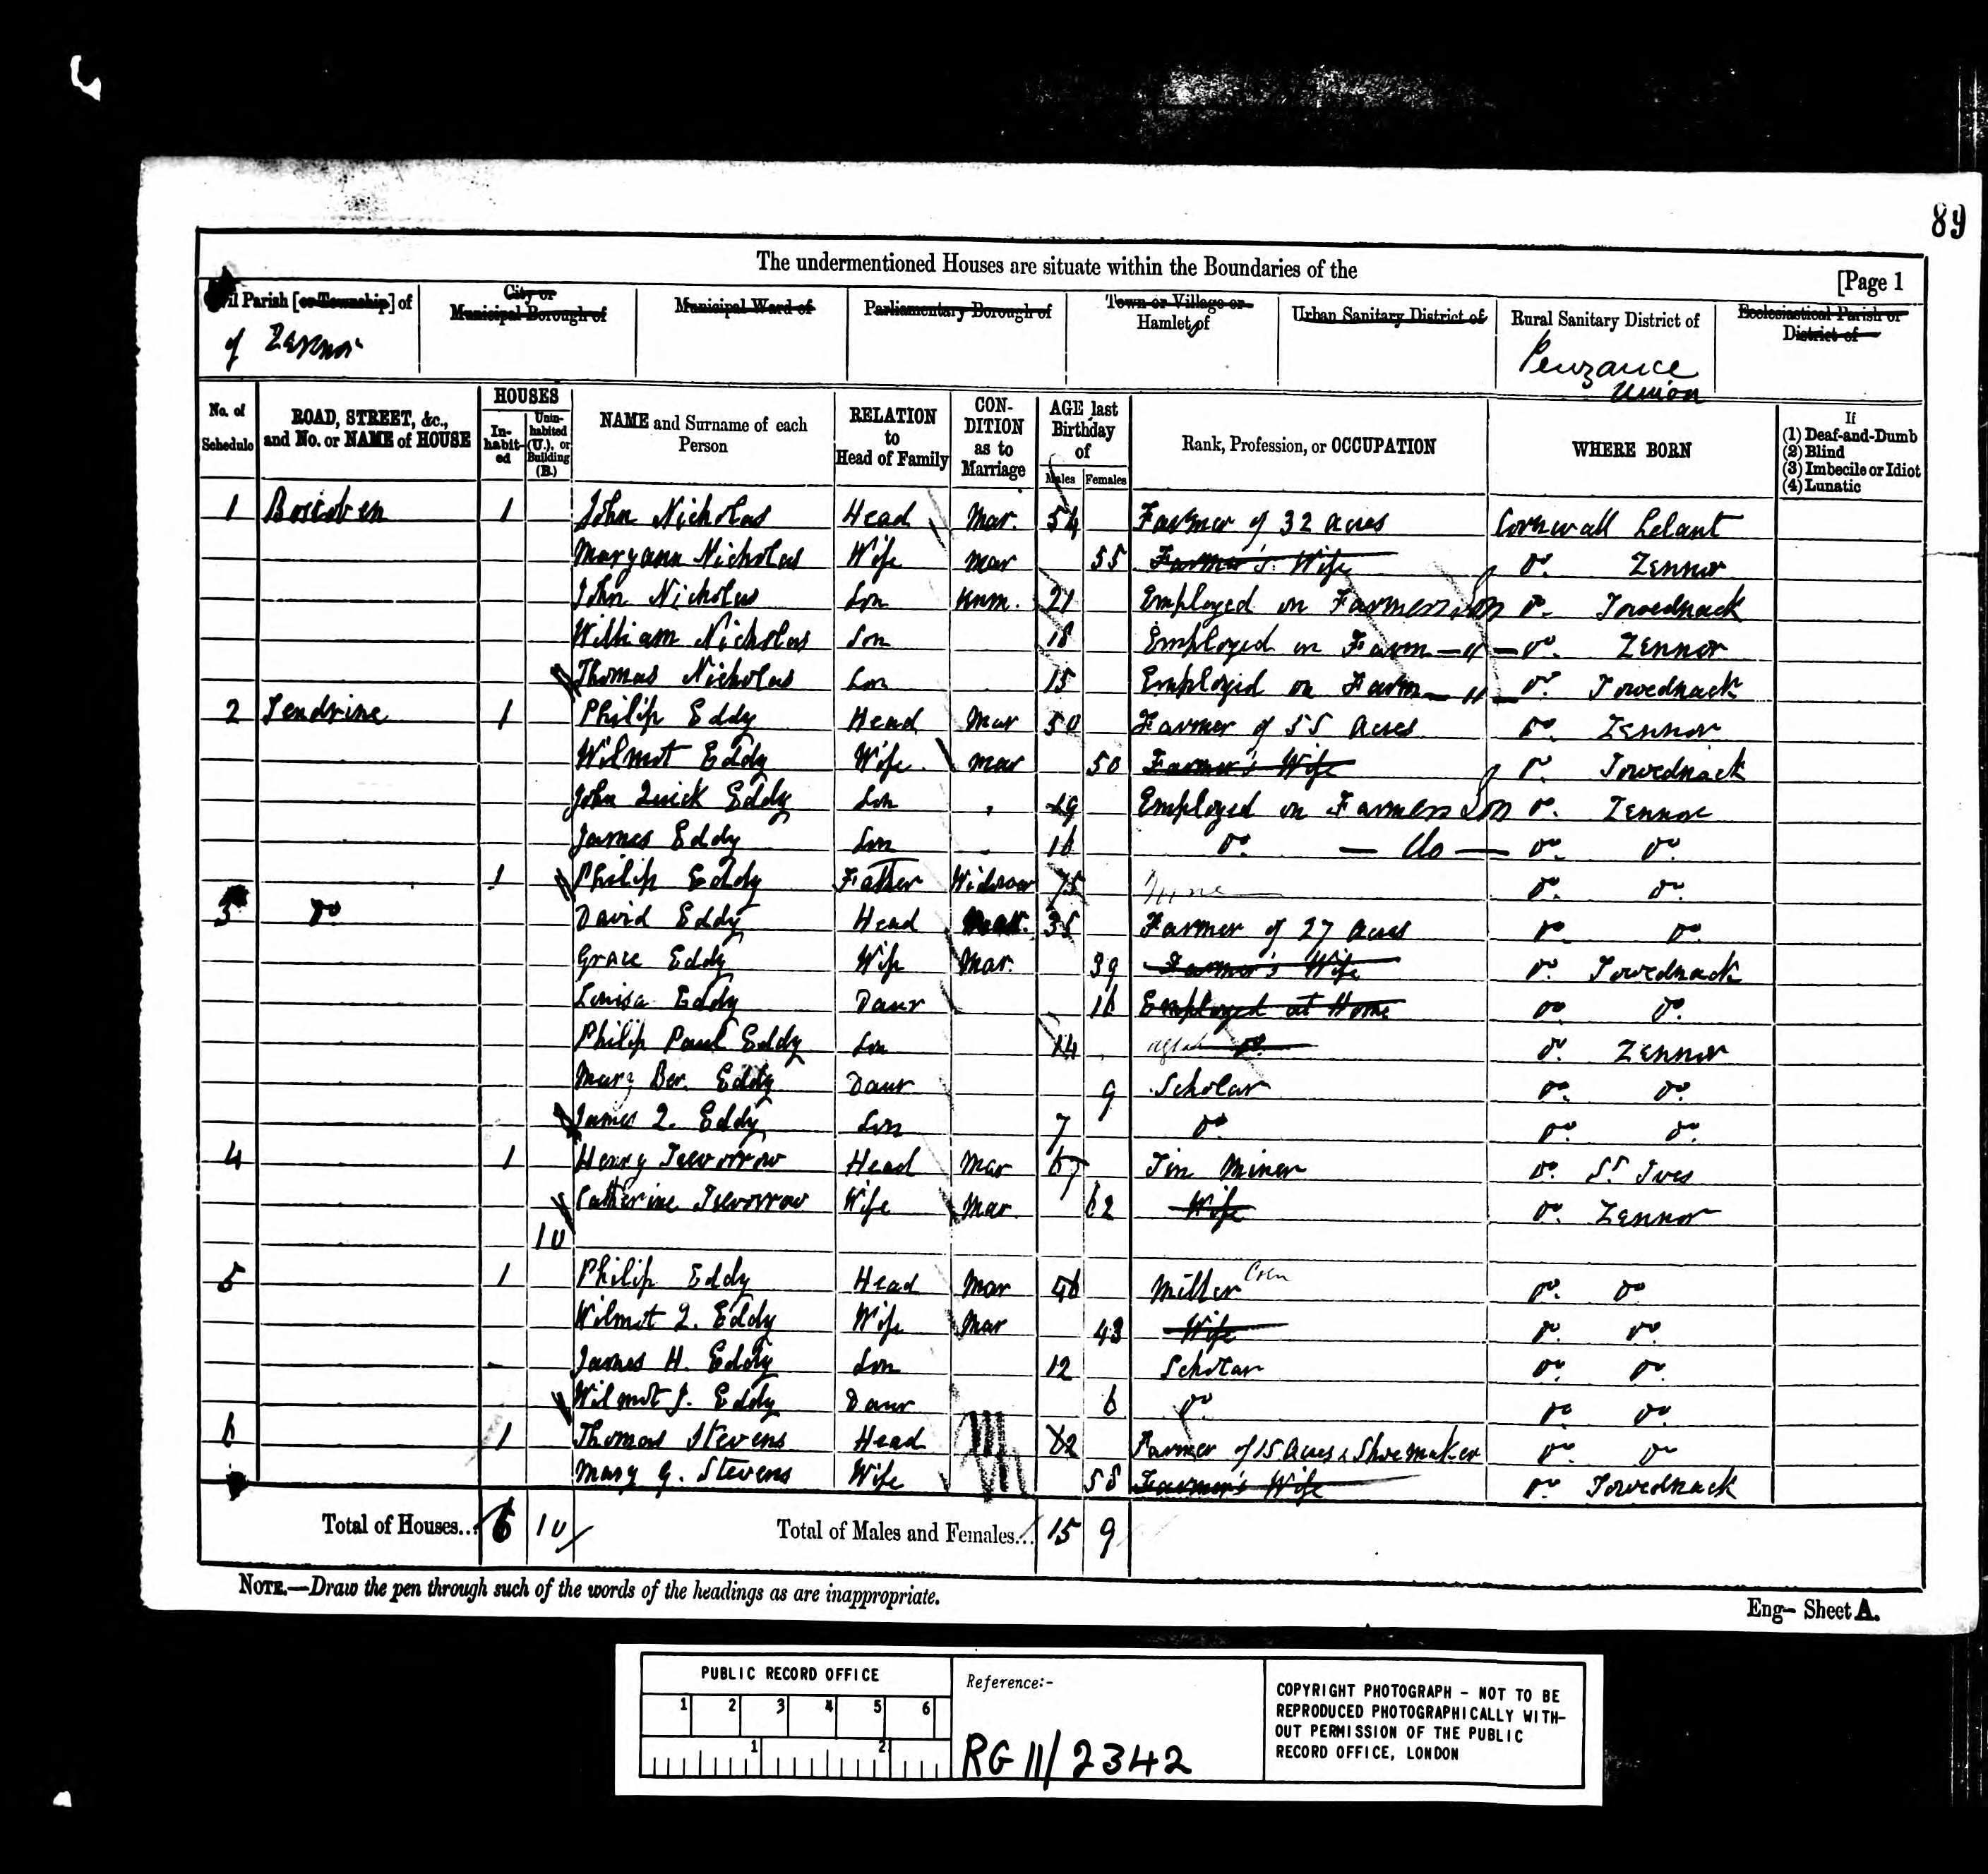 89
The undermentioned Houses are situate within the Boundaries of the
[Page 1
il Parish [or Township] of
of Zennor
City or Municipal Borough of
Municipal Ward of
Parliamentary Borough of
Town or Village or Hamlet of
Urban Sanitary District of
Rural Sanitary District of
Penzance Union
Ecclesiastical Parish or District of
No. of Schedule
ROAD, STREET, &c., and No. or NAME of HOUSE
HOUSES
In-habit-ed
Unin-habited (U.), or Building (B.)
NAME and Surname of each Person
RELATION to Head of Family
CON-DITION as to Marriage
AGE last Birthday of
Males Females
Rank, Profession, or OCCUPATION
WHERE BORN
If
(1) Deaf-and-Dumb
(2) Blind
(3) Imbecile or Idiot
(4) Lunatic
1 Boscoben 1 John Nicholas Head Mar. 54 Farmer of 32 Acres Cornwall Lelant
Maryann Nicholas Wife Mar 55 Farmer's Wife Do. Zennor
John Nicholas Son Unm. 21 Employed on Farmers Son Do. Towednack
William Nicholas Son 18 Employed on Farm — " — Do. Zennor
Thomas Nicholas Son 15 Employed on Farm — " — Do. Towednack
2 Tendrine 1 Philip Eddy Head Mar 50 Farmer of 55 Acres Do. Zennor
Wilmot Eddy Wife Mar 50 Farmer's Wife Do. Towednack
John Quick Eddy Son 19 Employed on Farmers Son Do. Zennor
James Eddy Son 16 Do. — do — Do. Do.
1 Philip Eddy Father Widower 75 None Do. Do.
3 Do 1 David Eddy Head Mar. 35 Farmer of 27 Acres Do. Do.
Grace Eddy Wife Mar. 39 Farmer's Wife Do. Towednack
Louisa Eddy Daur 16 Employed at Home Do. Do.
Philip Paul Eddy Son 14 Do. Do. Zennor
Mary Ber. Eddy Daur 9 Scholar Do. Do.
James Q. Eddy Son 7 Do. Do. Do.
4 1 Henry Trevorrow Head Mar 67 Tin Miner Do. St. Ives
Catherine Trevorrow Wife Mar. 62 Wife Do. Zennor
1U
5 1 Philip Eddy Head Mar 46 Miller Corn Do. Do
Wilmot Q. Eddy Wife Mar 43 Wife Do. Do.
James H. Eddy Son 12 Scholar Do. Do.
Wilmot J. Eddy Daur 6 Do. Do. Do.
6 1 Thomas Stevens Head 62 Farmer of 15 Acres & Shoemaker Do. Do
Mary G. Stevens Wife 58 Farmer's Wife Do. Towednack
Total of Houses... 6 1U Total of Males and Females... 15 9
NOTE.—Draw the pen through such of the words of the headings as are inappropriate.
Eng— Sheet A.
PUBLIC RECORD OFFICE
1 2 3 4 5 6
1 2
Reference:-
RG 11/2342
COPYRIGHT PHOTOGRAPH - NOT TO BE
REPRODUCED PHOTOGRAPHICALLY WITH-
OUT PERMISSION OF THE PUBLIC
RECORD OFFICE, LONDON